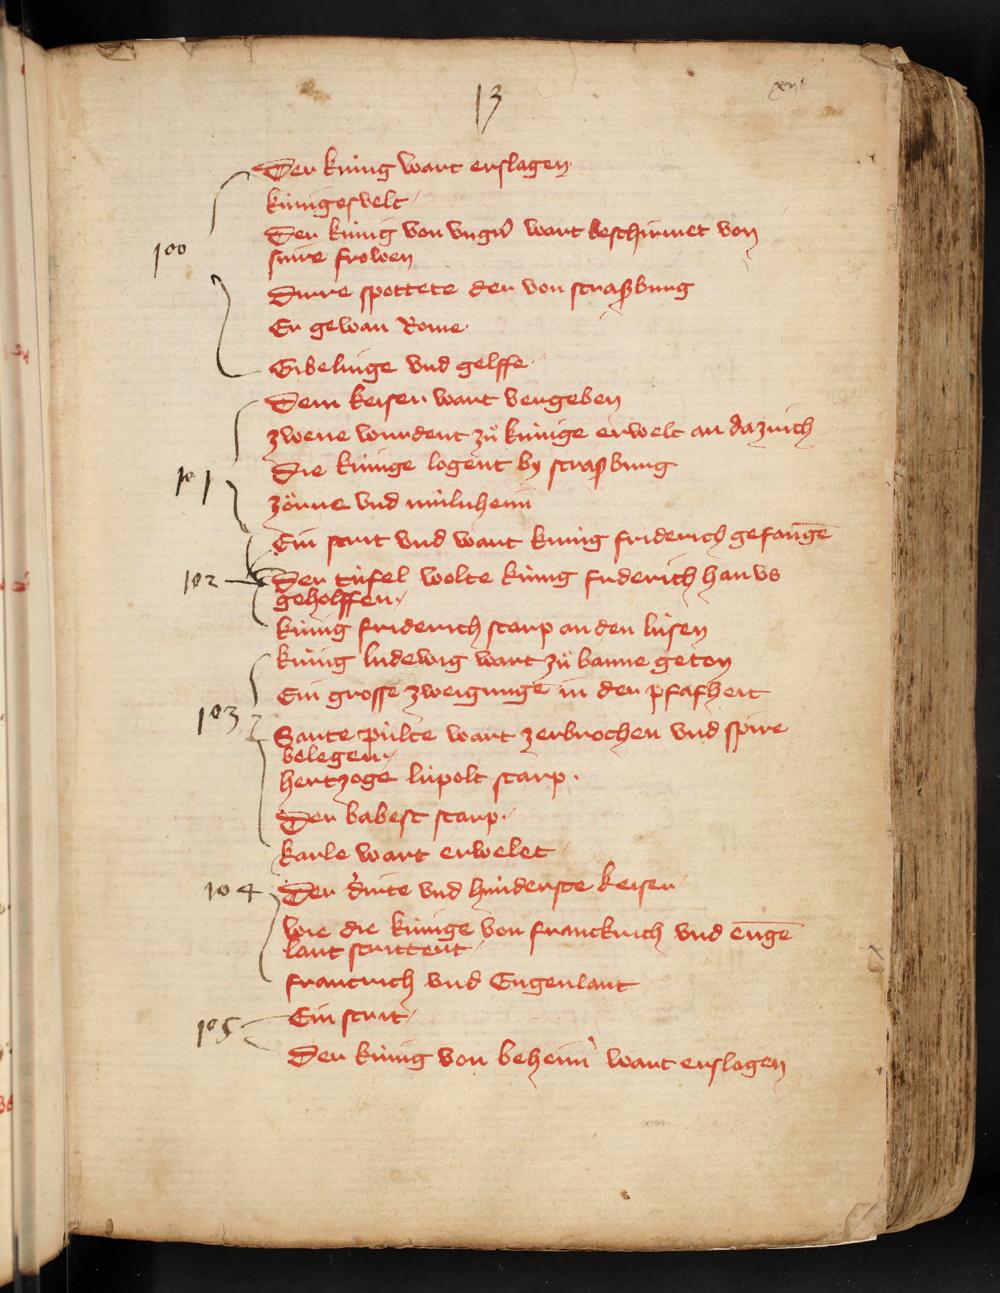 13
Der kúnig wart erslagen
kúnigesvelt
Der kúnig von vngern wart beschirmet von
sinre frowen
Dirre spottete der von straßburg
Er gewan Rome
Gibelinge vnd gelffe
Dem keiser wart vergeben
zwene wurdent zů kúnige erwelt an
Die kúnige logent by straßburg
zörne vnd múlnheim
Ein strit vnd wart kúnig friderich gefangē
Der túfel wolte kúnig friderich han vs
geholffen
kúnig friderich starp an den lúsen
kúnig ludewig wart zů banne geton
Ein grosse zweigunge in der pfafheit
Sante púlte wart zerbrochen vnd spire
belegen
hertzoge lúpolt starp
Der babest starp
karle wart erwelet
Der dritte vnd húnderste keiser
wie die kúnige von franckrich vnd engē
lant strittent
franckrich vnd Engenlant
Ein strit
Der kúnig von beheim wart erslagen
100
101
102
103
104
105